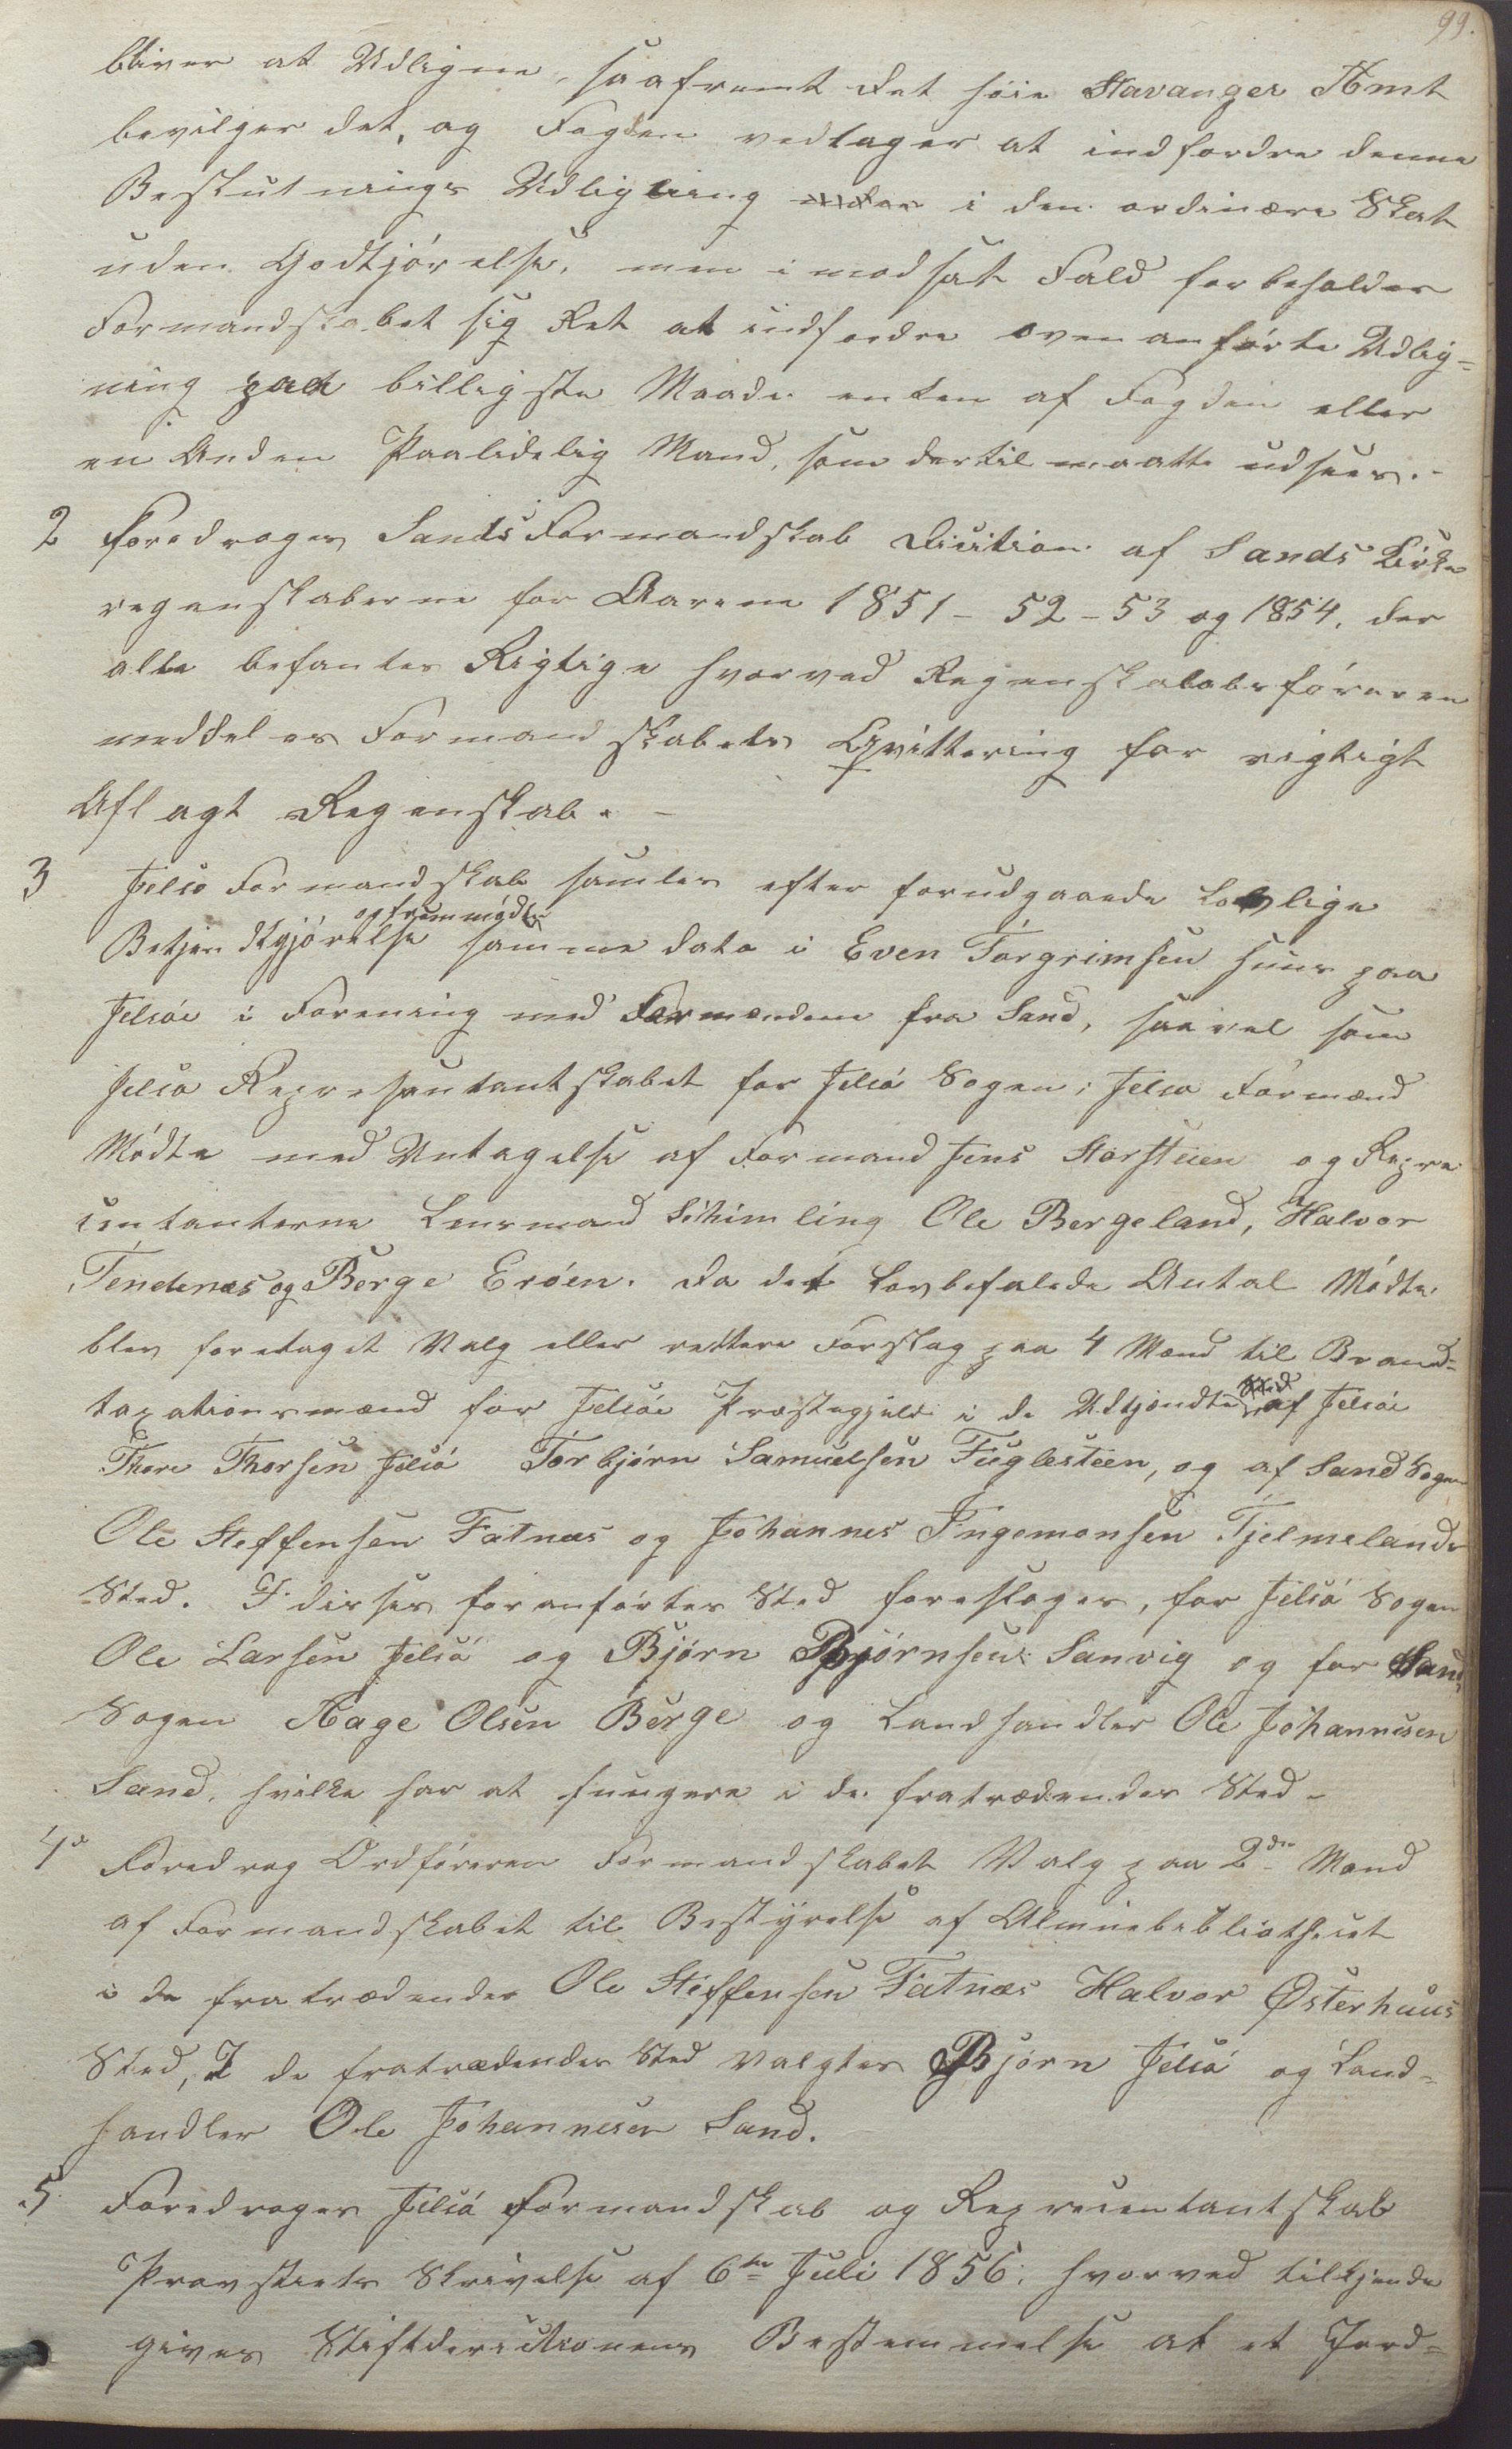 99.
bliver at Udligne, saafremt det høie Stavanger Amt
bevilger det, og Fogden vedtager at indfordre denne
Beslutnings Udligning i den ordinære Skat
uden Godtjørelse, men i modsat Fald forbeholder
Formandskabet sig Ret at indfordre ovenanførte Udlig-
ning paa billigste Maade enten af Fogden eller
en Anden Paalidelig Mand, som dertil maatte udsees.-
2 foredroges Sands Formandskab Dicition af Sands Kirke
regenskaberne for Aarene 1851 - 52 - 53 og 1854, der
alle befantes Rigtige hvorved Regenskabsføreren
meddeles Formandskabets Qvittering for rigtigt
Aflagt Regenskab. -
3 Jelsø Formandskab samles efter forudgaaede Lovlige
opfremmødte
Betjendtgjørelse samme dato i Even Torgrimsen huus paa
Jelsøe i Forening med Formændene fra Sand, saavel som
Jelsø Represantantskabet for Jelsø Sogen; Jelsø Formænd
Mødte med Untagelse af Formand Jens Storsteen og Repre
centanterne Lensmand Schimling Ole Bergeland, Halvor
Tendenæs og Berge Erøen. da det Lovbefalede Antal Mødte,
blev foretaget Valg eller rettere Forslag paa 4 Mænd til Brand-
taxationsmænd for Jelsøe Præstegjeld i de Udtjendte Sted af Jelsøe
Thore Thorsen Jelsø Torbjørn Samuelsen Fuglesteen, og af Sand Sogen
Ole Steffensen Fatnæs og Johannes Ingemonsen Tjelmelands
Sted. I disses foranførtes Sted foresloges, for Jelsø Sogen
Ole Larsen Jelsø og Bjørn Bjørnsen Sanvig og for Sand
Sogen Aage Olsen Berge og Landhandler Ole Johannesen
Sand, hvilke har at fungere i de fratrædendes Sted -
4 Foredrog Ordføreren Formandskabet Valg paa 2de Mænd
af Formandskabet til Bestyrelse af Almuebibliothecet
i de fratrædendes Ole Steffensen Fatnæs Halvor Østerhuus
Sted, I de fratrædendes Sted Valgtes Bjørn Jelsø og Land-
handler Ole Johannesen Sand.
5 Foredroges Jelsø Formandskab og Reprecentantskab
Provstiets Skrivelse af 6te Juli 1856, hvorved tilkjende
gives Stiftdirectionens Bestemmelse at et Jord-